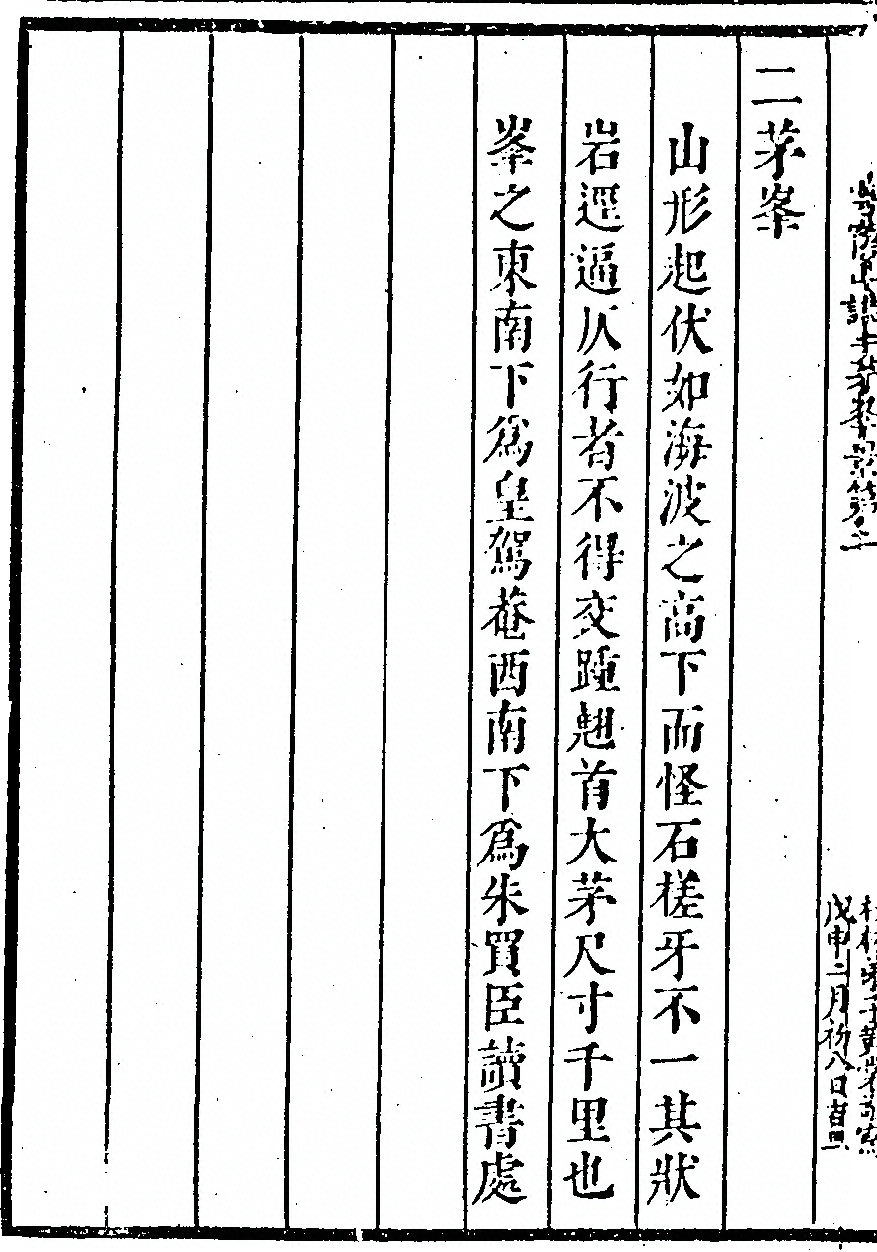 二茅峯
山形起伏如海波之高下而怪石槎牙不一其狀
岩逕逼仄行者不得交踵翹首大茅尺寸千里也
峯之東南下爲皇駕菴西南下爲朱買臣讀書處
戊申二月初八日